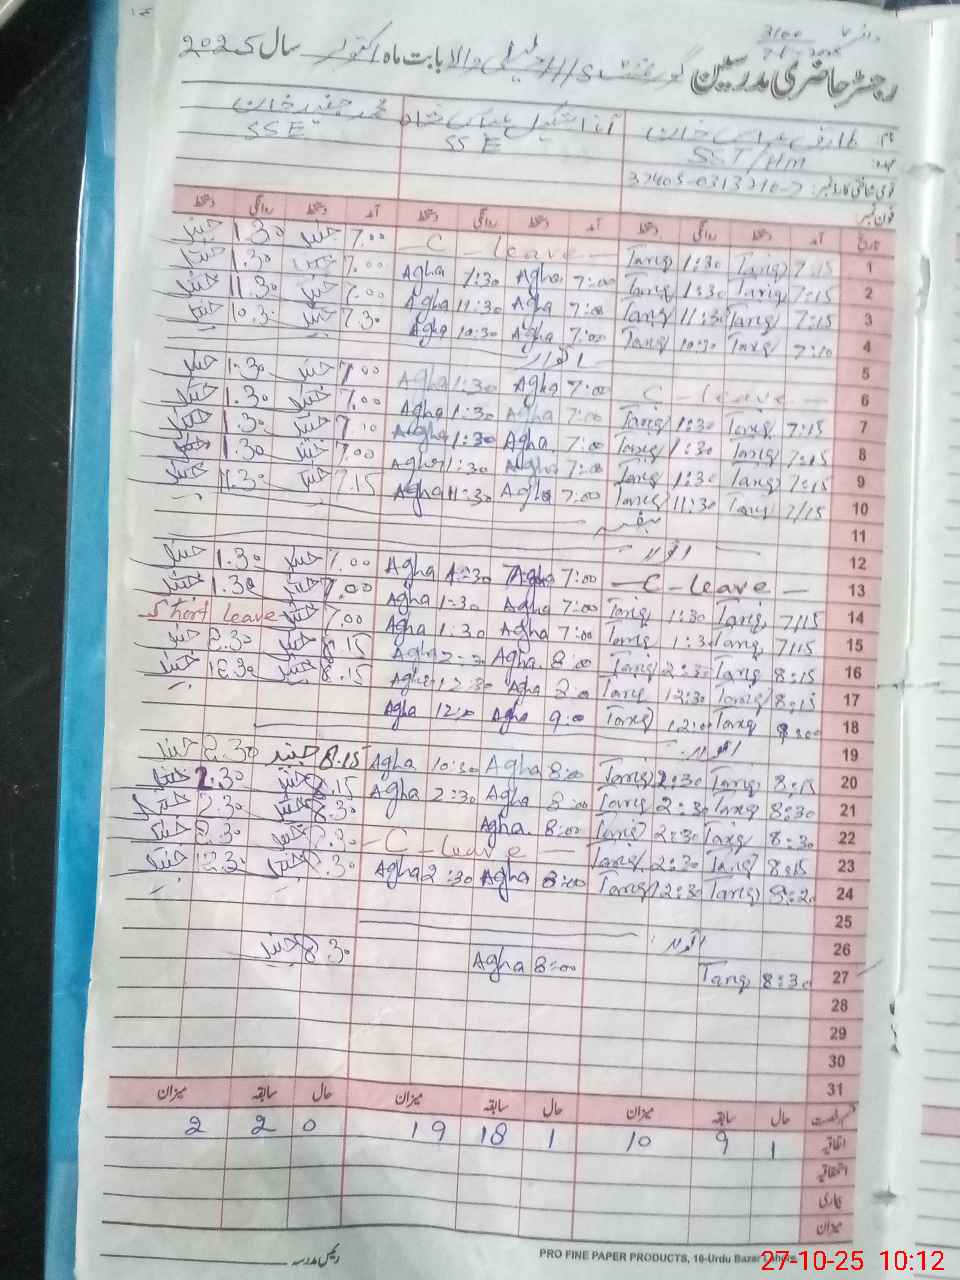 رجسٹر حاضری مدرسین گورنمنٹ بابت ماہ اکتوبر سال 2025
نام
SST/HM SSE SSE
قومی شناختی کارڈ نمبر: 37405-0313210-7
فون نمبر
تاریخ آمد دستخط روانگی دستخط آمد دستخط روانگی دستخط آمد دستخط روانگی دستخط
1 7:15 Tariq 1:30 Tariq - C - leave - 7.00 جنید 1.30 جنید
2 7:15 Tariq 1:30 Tariq 7:00 Agha 1:30 Agha 7.00 جنید 1.30 جنید
3 7:15 Tariq 11:30 Tariq 7:00 Agha 11:30 Agha 7.00 جنید 11.30 جنید
4 7:10 Tariq 10:30 Tariq 7:00 Agha 10:30 Agha 7.30 جنید 10.30 جنید
5 اتوار
6 - C - leave - 7:00 Agha 1:30 Agha 7.00 جنید 1.30 جنید
7 7:15 Tariq 1:30 Tariq 7:00 Agha 1:30 Agha 7.00 جنید 1.30 جنید
8 7:15 Tariq 1:30 Tariq 7:00 Agha 1:30 Agha 7.10 جنید 1.30 جنید
9 7:15 Tariq 1:30 Tariq 7:00 Agha 1:30 Agha 7.00 جنید 1.30 جنید
10 7:15 Tariq 11:30 Tariq 7:00 Agha 11:30 Agha 7.15 جنید 11.30 جنید
11 ہفتہ
12 اتوار
13 - C - leave - 7:00 Agha 1:30 Agha 7.00 جنید 1.30 جنید
14 7:15 Tariq 1:30 Tariq 7:00 Agha 1:30 Agha 7.00 جنید 1.30 جنید
15 7:15 Tariq 1:30 Tariq 7:00 Agha 1:30 Agha 7.00 جنید Short leave
16 8:15 Tariq 2:30 Tariq 8:00 Agha 2:30 Agha 8.15 جنید 2.30 جنید
17 8:15 Tariq 12:30 Tariq 8:00 Agha 12:30 Agha 8.15 جنید 12.30 جنید
18 Tariq 12:00 Tariq 9:00 Agha 12:00 Agha
19 اتوار
20 8:15 Tariq 2:30 Tariq 8:00 Agha 10:30 Agha 8.15 جنید 2.30 جنید
21 8:30 Tariq 2:30 Tariq 8:00 Agha 2:30 Agha 8.15 جنید 2.30 جنید
22 8:30 Tariq 2:30 Tariq 8:00 Agha 8.30 جنید 2.30 جنید
23 8:15 Tariq 2:30 Tariq - C - leave - 8.30 جنید 2.30 جنید
24 8:20 Tariq 12:30 Tariq 8:00 Agha 2:30 Agha 8.30 جنید 12.30 جنید
25
26 اتوار
27 8:30 Tariq 8:00 Agha 8.30 جنید
28
29
30
31
رخصت حال سابقہ میزان حال سابقہ میزان حال سابقہ میزان
اتفاقیہ 1 9 10 1 18 19 0 2 2
استحقاقیہ
بیماری
میزان
رئیس مدرسہ
PRO FINE PAPER PRODUCTS, 16-Urdu Bazar Lahore
27-10-25 10:12